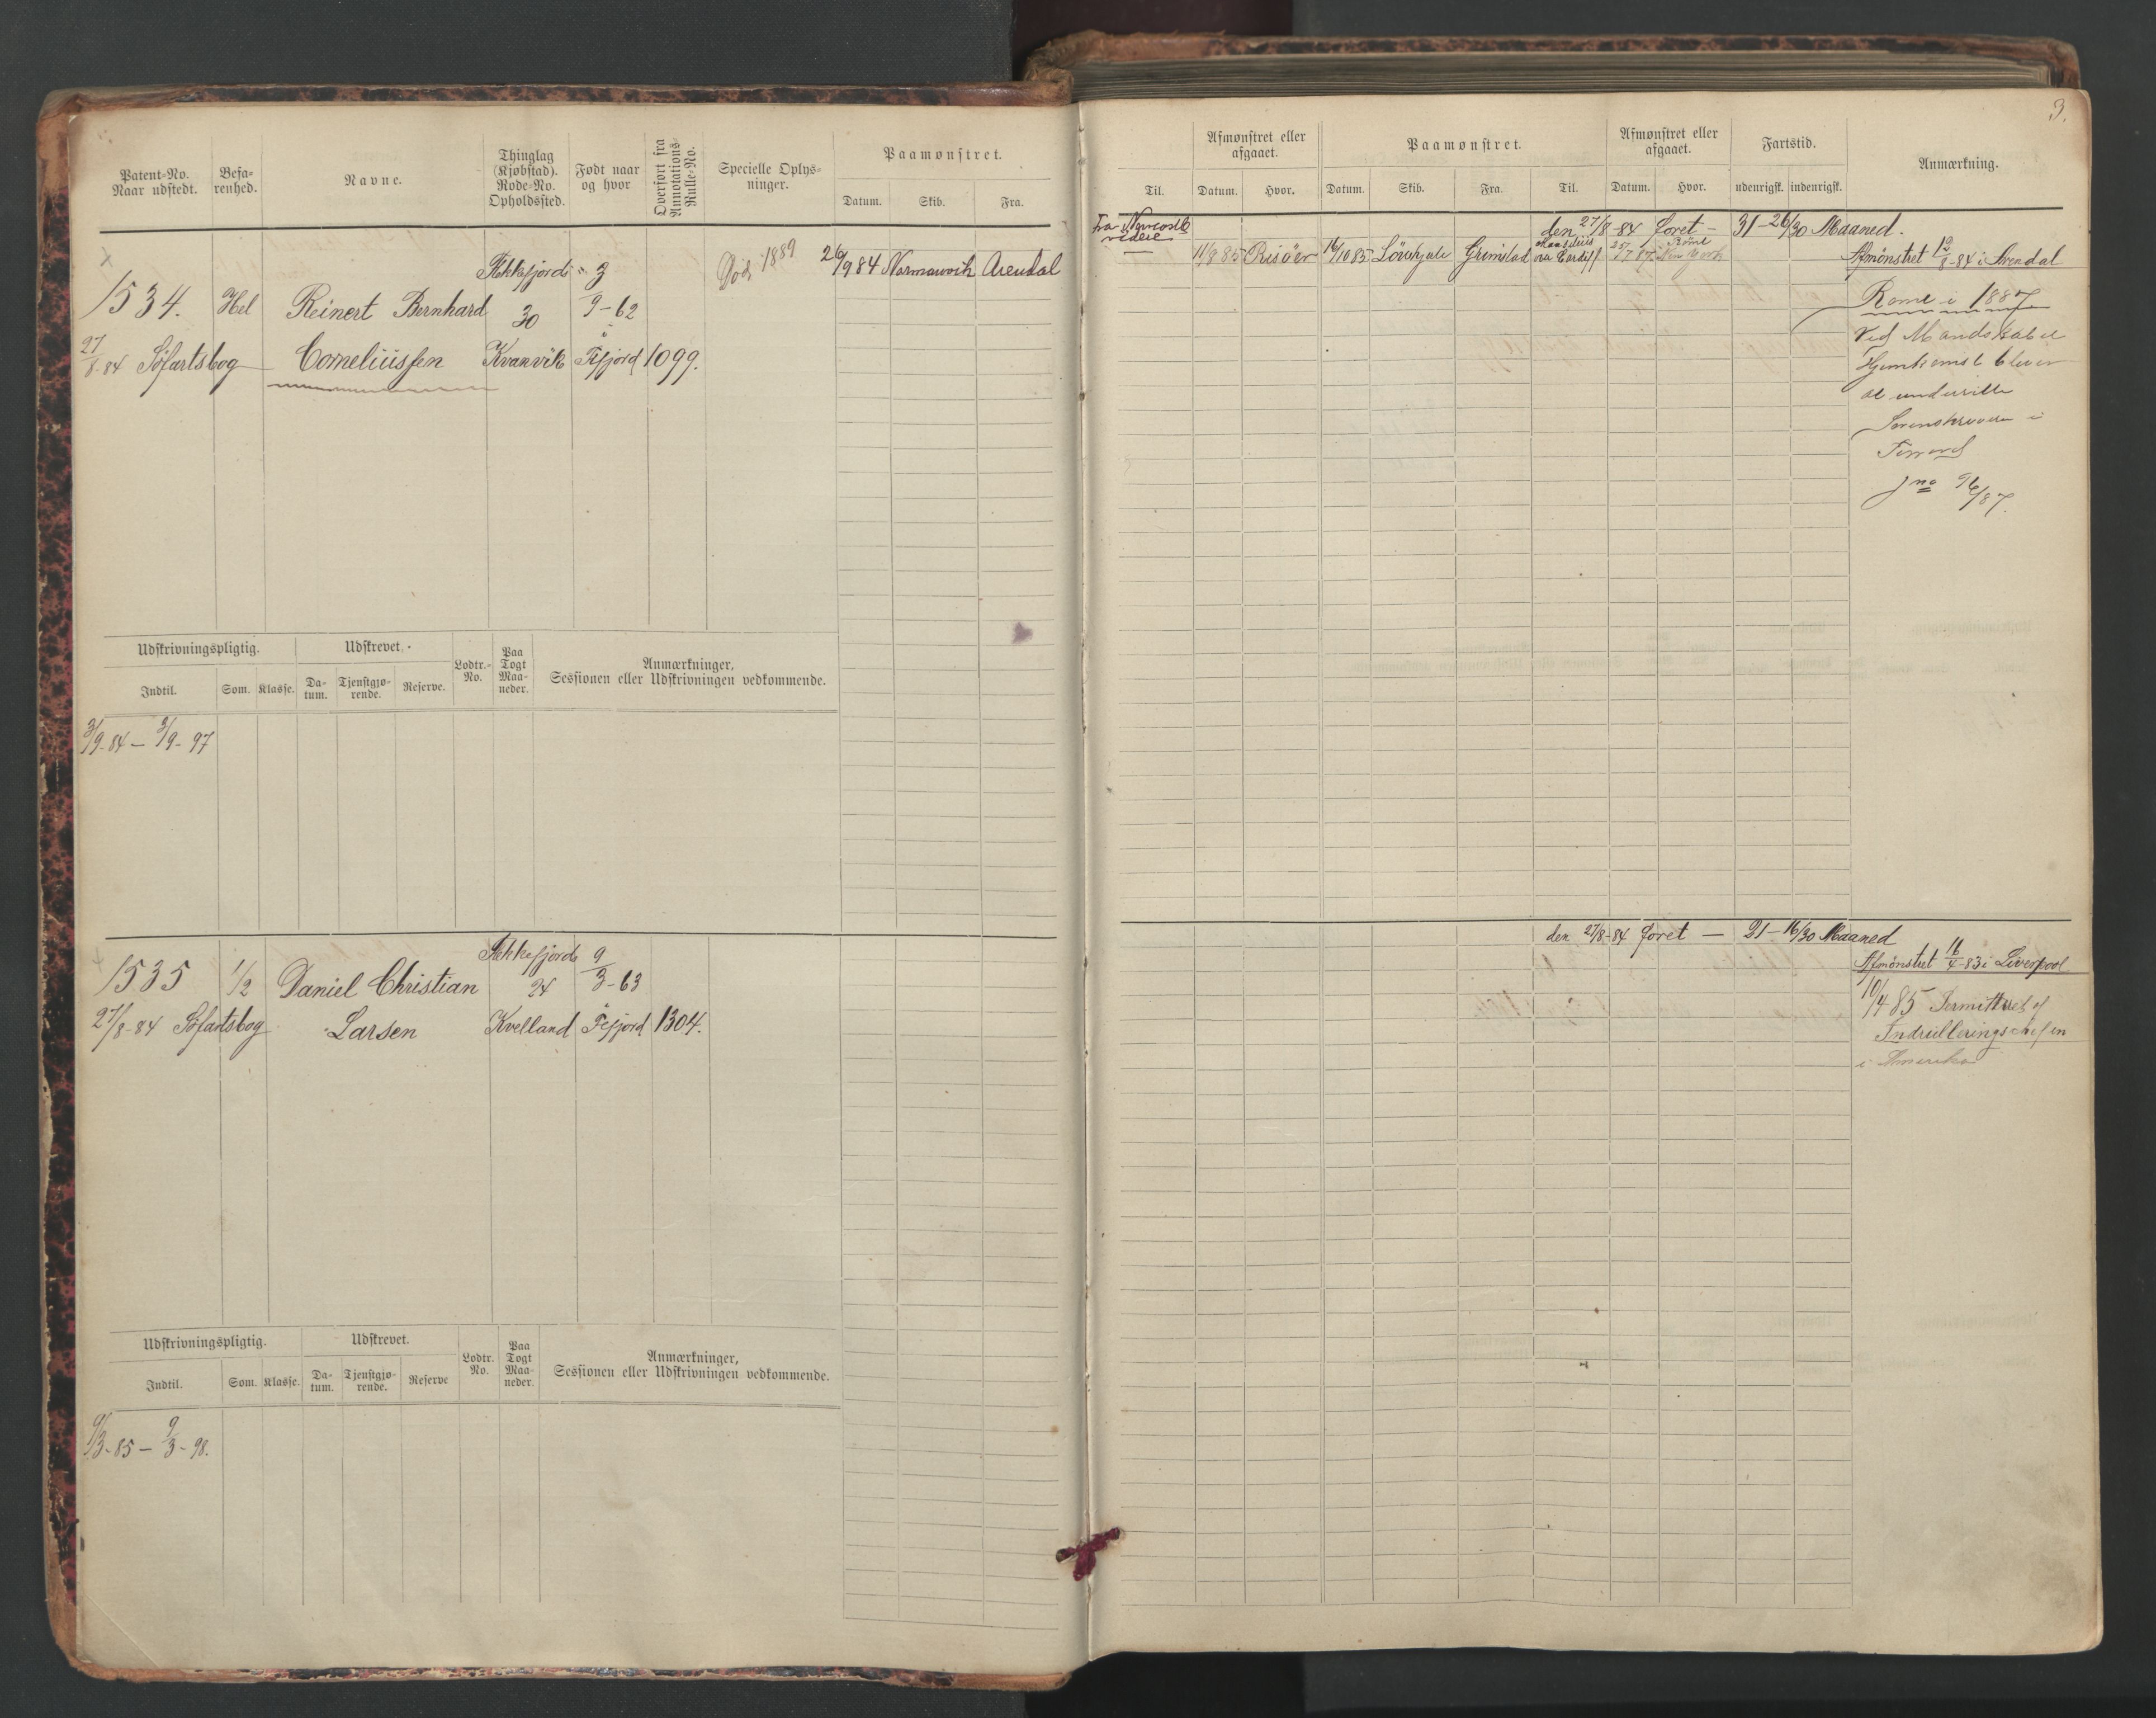 3.
Patent-No.
Naar udstedt.
Befa-
renhed.
Navne.
Thinglag
(Kjøbstad).
Rode-No.
Opholdssted.
Født naar
og hvor
Overført fra
Annotations-
Rulle-No.
Specielle Oplys-
ninger.
Paamønstret.
Datum.
Skib.
Fra.
Flekkefjord 3
Død 1889
26/9 84 Normanvik Arendal
1534. Hel Reinert Bernhard 30 9-62
27/8-84 Søfartsbog Corneliussen Kvanvik i Fefjord 1099.
Udskrivningspligtig.
Udskrevet.
Lodtr.-
No.
Paa
Togt
Maa-
neder.
Anmærkninger,
Sessionen eller Udskrivningen vedkommende.
Indtil.
Som.
Klasse.
Da-
tum.
Tjenstgjø-
rende.
Reserve.
3/9-84 — 3/9-97
Flekkefjord 9
1535 1/2 Daniel Christian 24 3-63
27/8-84 Søfartsbog Larsen Kvelland Fefjord 1304.
Udskrivningspligtig.
Udskrevet.
Lodtr.
No.
Paa
Togt
Maa-
neder.
Anmærkninger,
Sessionen eller Udskrivningen vedkommende.
Indtil.
Som.
Klasse.
Da-
tum.
Tjenstgjø-
rende.
Reserve
9/3-85 — 9/3-98.
Til.
Afmønstret eller
afgaaet.
Datum.
Hvor.
Paamønstret.
Datum.
Skib.
Fra.
Til.
Afmønstret eller
afgaaet.
Datum.
Hvor.
Fartstid.
udenrigsk.
indenrigsk.
Anmærkning.
den 27/8-84 faret — 31-26/30 Maaned.
11/8 85 Risöer 16/10 85 Grimstad via Cardiff New York
Afmönstret 19/8-84 i Arendal
Rome i 1887
Ved Mandskabets
Hjemkomst bliver
at underrette
Sorenskriveren i
jno 96/87.
den 27/8-84 faret — 21-16/30 Maaned
Afmönstret 16/4-83 i Liverpool
10/4 85 Permitteret af
Indrulleringschefen
i Amerika